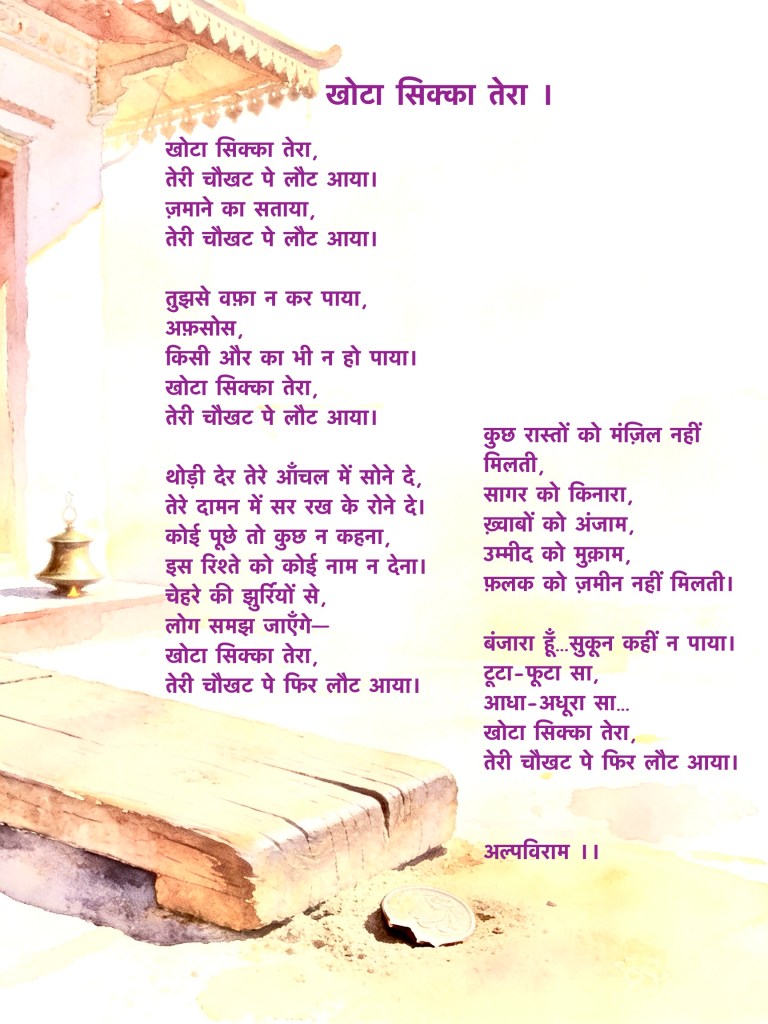 खोटा सिक्का तेरा ।
खोटा सिक्का तेरा,
तेरी चौखट पे लौट आया।
ज़माने का सताया,
तेरी चौखट पे लौट आया।
तुझसे वफ़ा न कर पाया,
अफ़सोस,
किसी और का भी न हो पाया।
खोटा सिक्का तेरा,
तेरी चौखट पे लौट आया।
थोड़ी देर तेरे आँचल में सोने दे,
तेरे दामन में सर रख के रोने दे।
कोई पूछे तो कुछ न कहना,
इस रिश्ते को कोई नाम न देना।
चेहरे की झुर्रियों से,
लोग समझ जाएँगे—
खोटा सिक्का तेरा,
तेरी चौखट पे फिर लौट आया।
कुछ रास्तों को मंज़िल नहीं
मिलती,
सागर को किनारा,
ख़्वाबों को अंजाम,
उम्मीद को मुक़ाम,
फ़लक को ज़मीन नहीं मिलती।
बंजारा हूँ...सुकून कहीं न पाया।
टूटा-फूटा सा,
आधा-अधूरा सा...
खोटा सिक्का तेरा,
तेरी चौखट पे फिर लौट आया।
अल्पविराम ।।